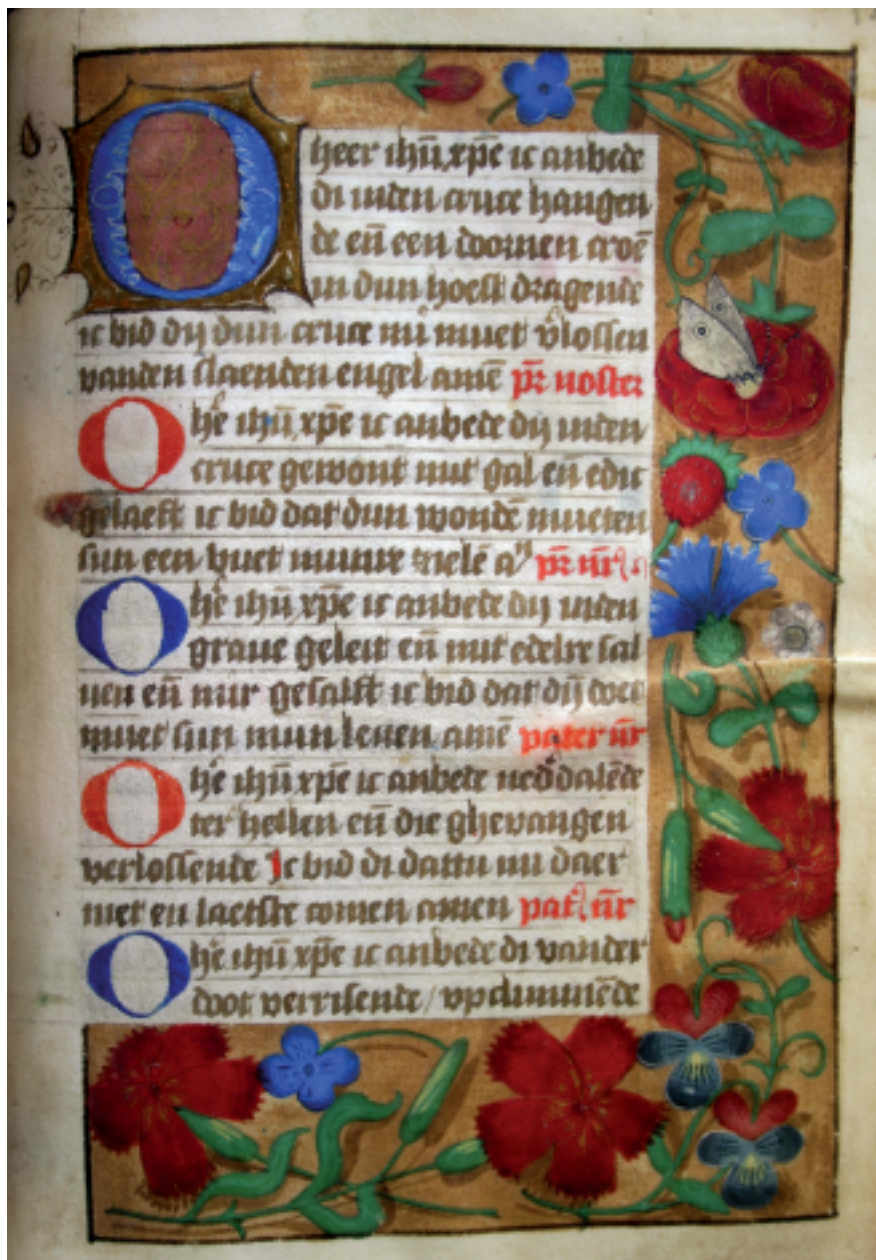 O heer ihū xp̄e ic anbede
di inden cruce hangen
de en̄ een doornen croē
in dijn hoeft dragende
ic bid dij dijn cruce mi muet v̄lossen
vanden slaenden engel amē pr̄ noster
O he ihū xp̄e ic anbede dij inden
cruce gewont mit gal en̄ edic
gelaeft ic bid dat dijn wondē mueten
sijn een huet mijnre sielē pr̄ nr̄
O he ihū xp̄e ic anbede dij inden
graue geleit en̄ mit edelre sal
uen en̄ mir gesalft ic bid dat dij doet
muet sijn mijn leuen amē pater nr̄
O he ihū xp̄e ic anbede ned dalēde
ter hellen en̄ die ghevangen
verlossende Ic bid di dattu mi daer
niet en laetste comen amen pat nr̄
O he ihū xp̄e ic anbede di vander
doot verrisende / vpclimmēde